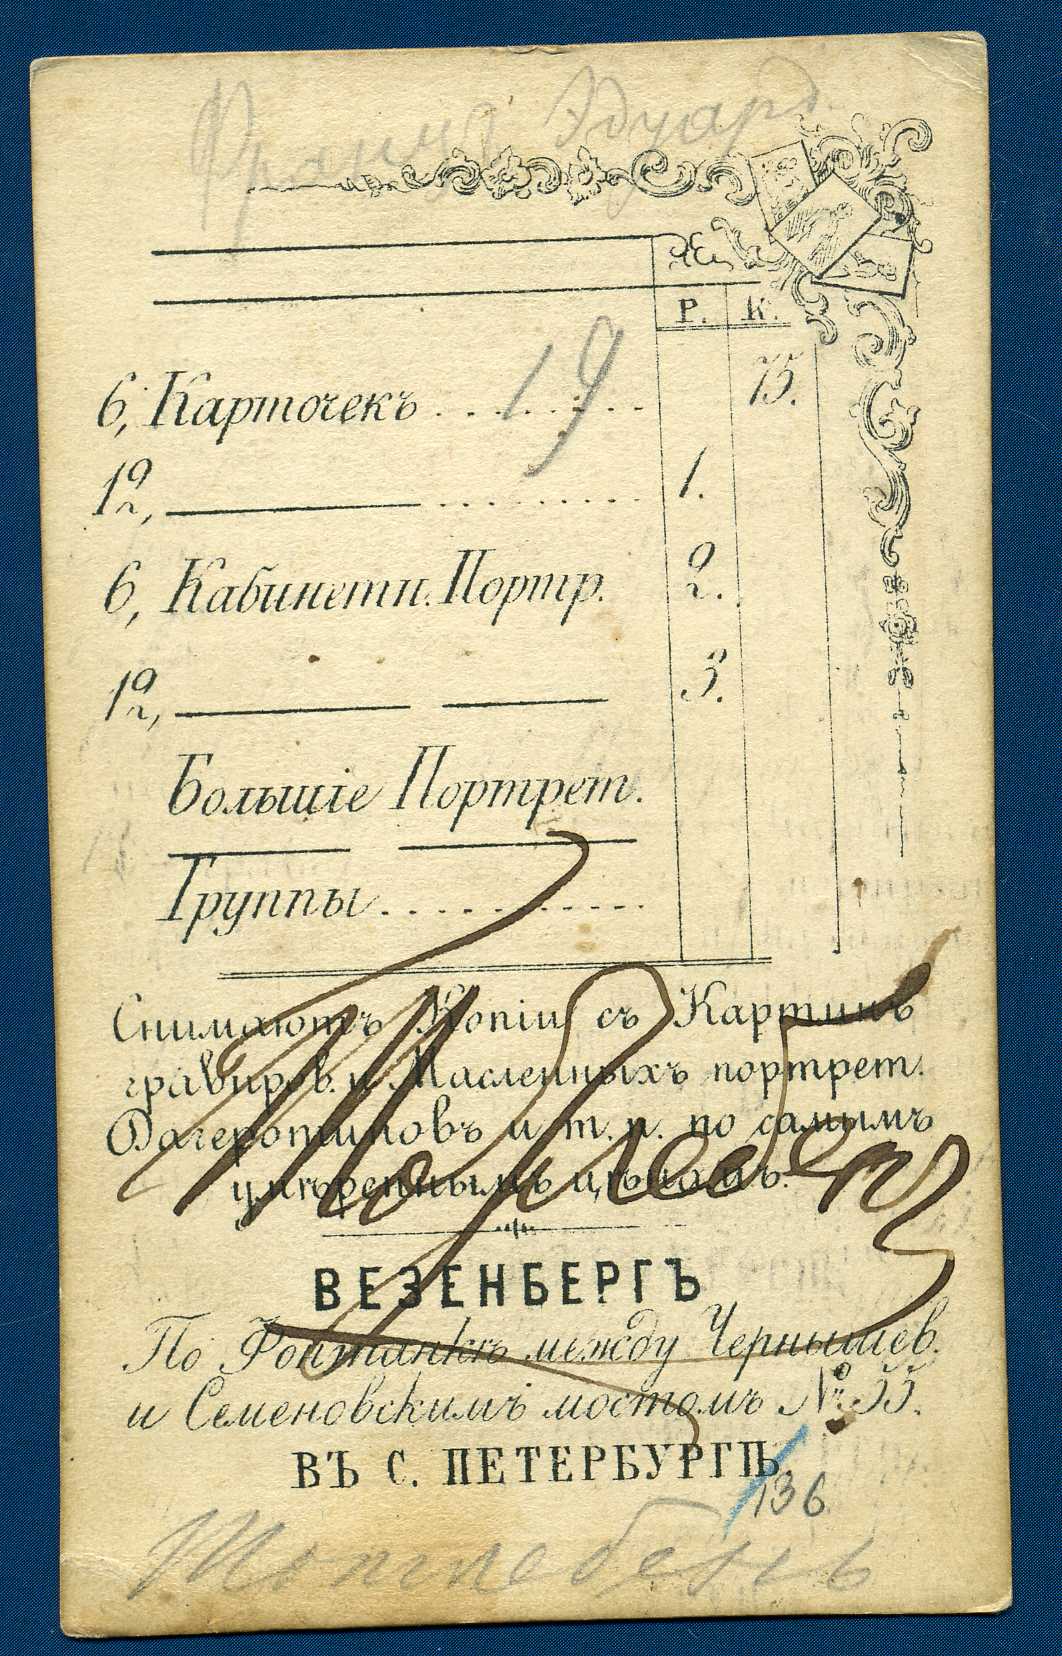 Францъ Эдуард
Цѣн
Р. К.
6, Карточекъ . . . . . . . . . 75.
19
12, ——— . . . . . . . . . 1.
6, Кабинетн. Портр. 2.
12, ——— ——— 3.
Большіе Портрет.
——— ———
Группы . . . . . . . . . . . .
Снимаютъ Копіи съ Картинъ
гравиров. и Масленныхъ портрет.
Дагеротиповъ и т. п. по самымъ
умѣреннымъ цѣнамъ.
Тотлебен
ВЕЗЕНБЕРГЪ
По Фонтанкѣ между Чернышев.
и Семеновскимъ мостомъ № 55.
ВЪ С. ПЕТЕРБУРГѢ.
136
Тотлебенъ